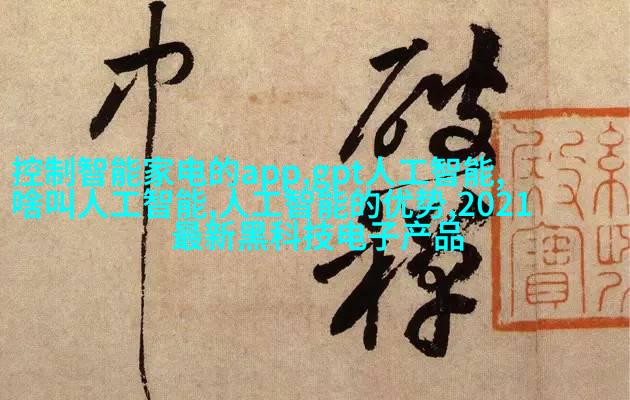 控制智能家电的app,gpt人工智能,
啥叫人工智能,人工智能的优势,2021
最新黑科技电子产品
破